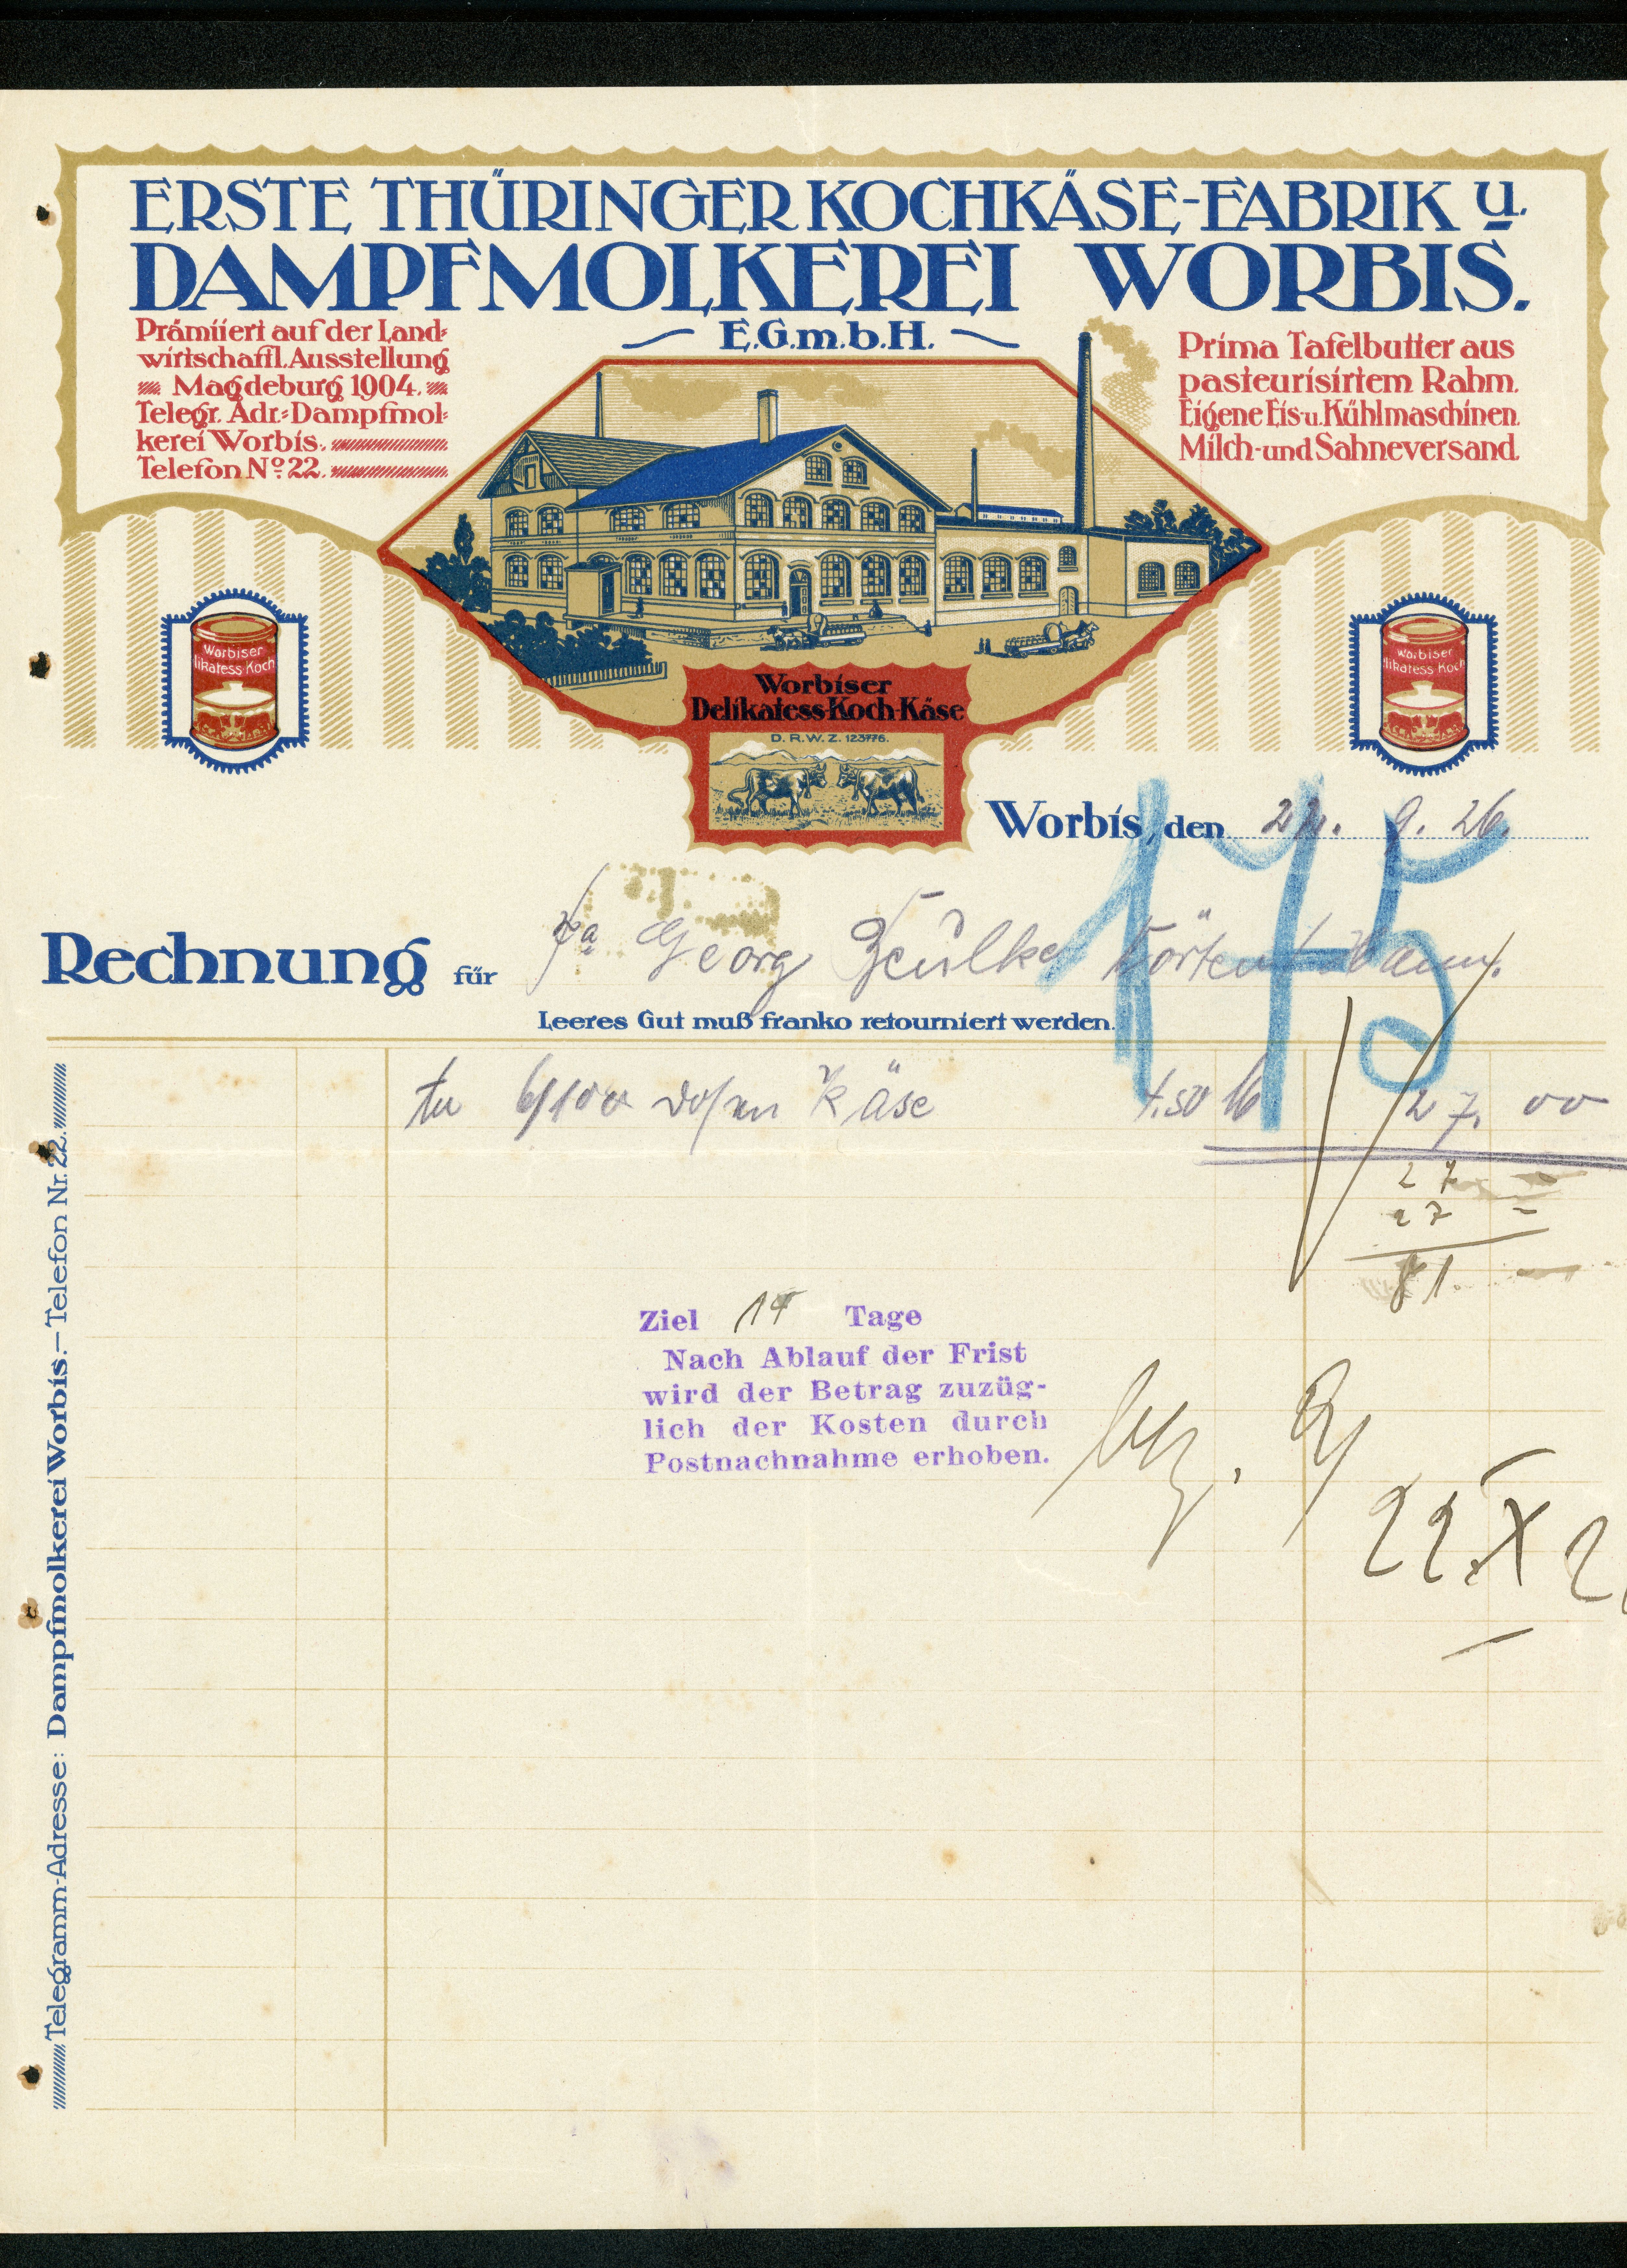 ERSTE THÜRINGER KOCHKÄSE-FABRIK u.
DAMPFMOLKEREI WORBIS.
E.G.m.b.H.
Prämiiert auf der Land-
wirtschaftl. Ausstellung
Magdeburg 1904.
Telegr. Adr.: Dampfmol-
kerei Worbis.
Telefon No. 22.
Prima Tafelbutter aus
pasteurisirtem Rahm.
Eigene Eis u. Kühlmaschinen.
Milch- und Sahneversand.
Worbiser
likatess-Koch
Worbiser
likatess Koch
Worbiser
Delikatess-Koch-Käse
D. R. W. Z. 123776.
Worbis, den 9. 26.
175
Rechnung für Fa Georg
Leeres Gut muß franko retourniert werden.
6/100 Dosen Käse 4.50 27. 00
27
27 =
81.
Ziel 14 Tage
Nach Ablauf der Frist
wird der Betrag zuzüg-
lich der Kosten durch
Postnachnahme erhoben.
22. X 2
Telegramm-Adresse: Dampfmolkerei Worbis. — Telefon Nr. 22.